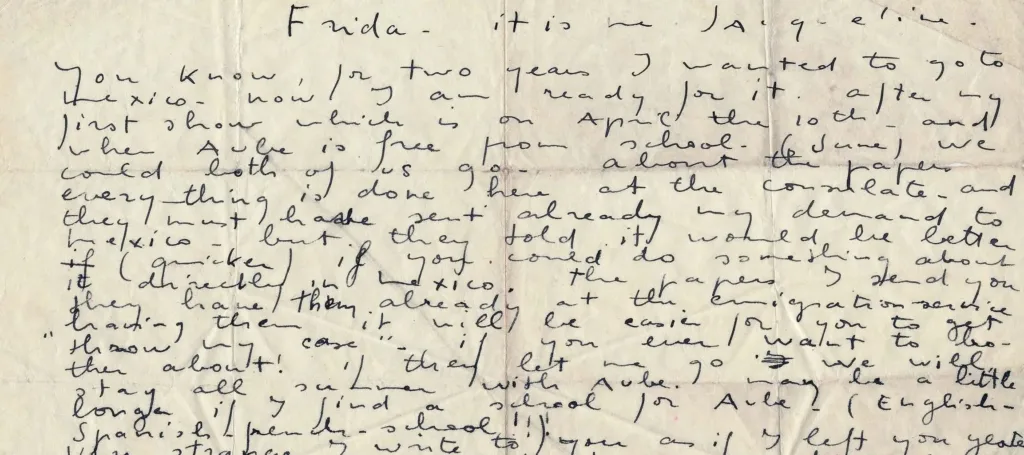 Frida - it is me Jacqueline.
You know, for two years I wanted to go to
mexico - now I am ready for it. after my
first show which is on April the 10th - and
when Aube is free from school - (June) we
could both of us go - about the papers
every thing is done here at the consulate - and
they must have sent already my demand to
mexico - but they told it would be better
if (quicker) if you could do something about
it directly in mexico. The papers I send you
they have them already at the emigration-service
having them it will be easier for you to get
"throw my case" - if you ever want to bo-
ther about! if they let me go we will
stay all summer with Aube. may be a little
longer if I find a school for Aube - (English-
Spanish-french-school!!!)
very strange I write to you as if I left you